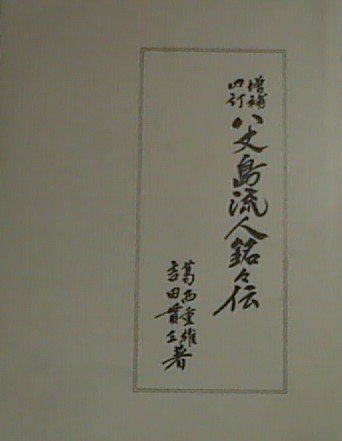 増補
四訂
八丈島流人銘々伝
葛西重雄
吉田貫三
著